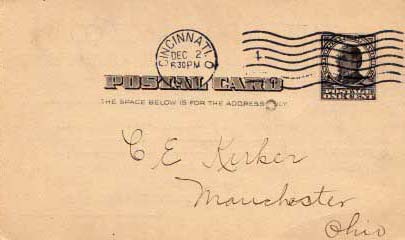 CINCINNATI, O.
DEC 2
6 30 PM
1
POSTAL CARD
THE SPACE BELOW IS FOR THE ADDRESS ONLY.
POSTAGE
ONE CENT
C E Kerker
Manchester
Ohio